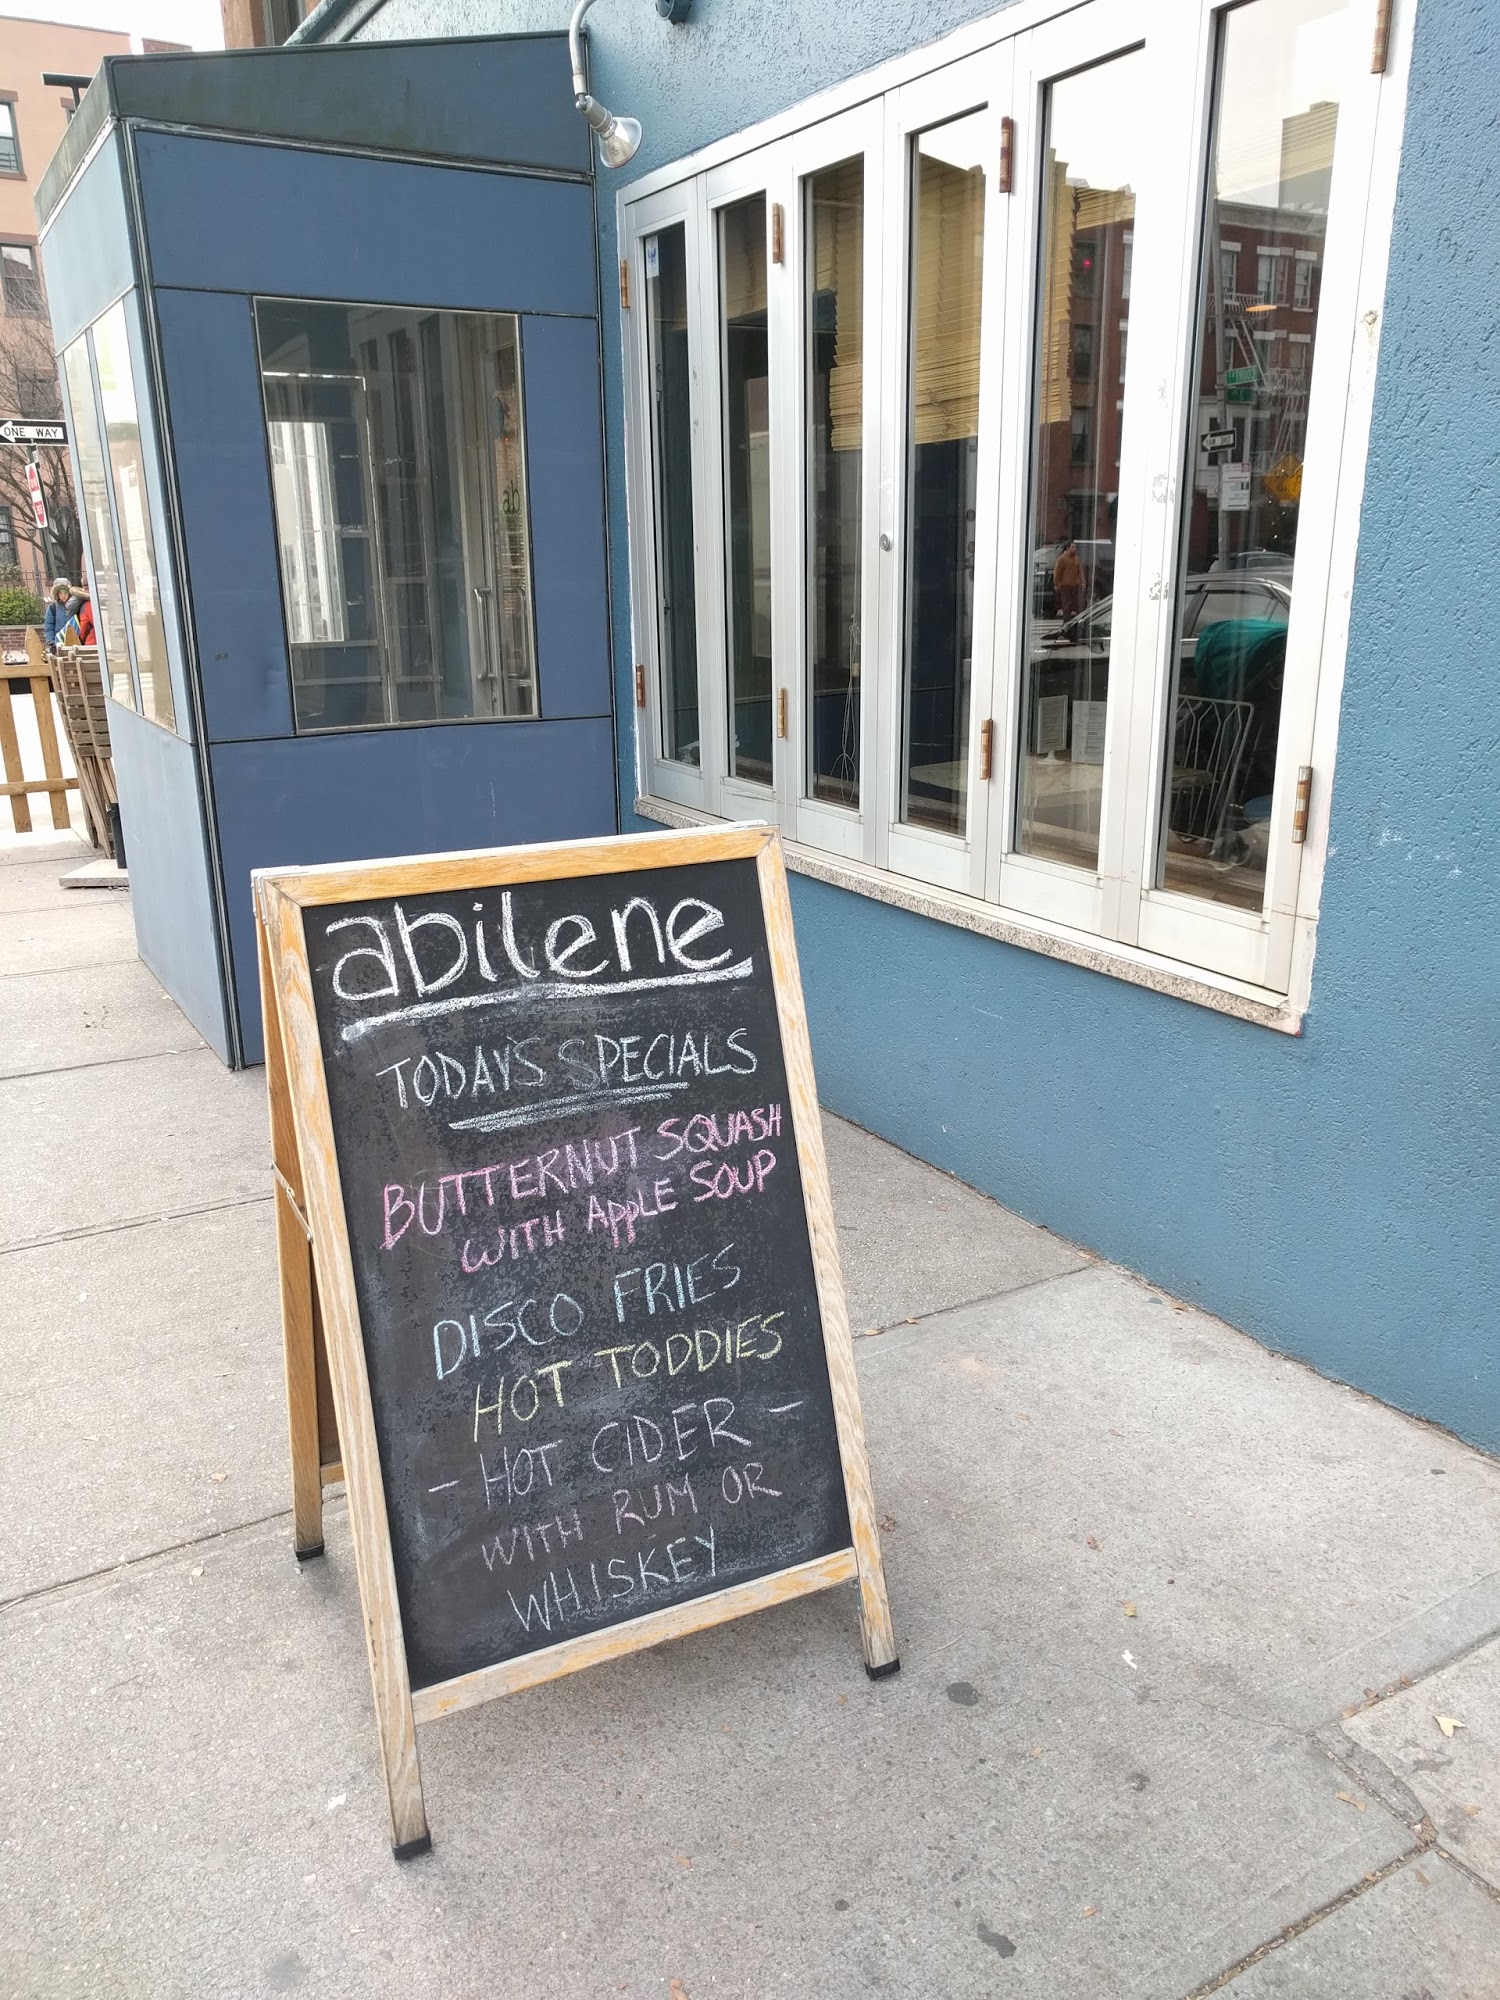 ONE WAY
ab
abilene
TODAY'S SPECIALS
BUTTERNUT SQUASH
WITH APPLE SOUP
DISCO FRIES
HOT TODDIES
- HOT CIDER -
WITH RUM OR
WHISKEY